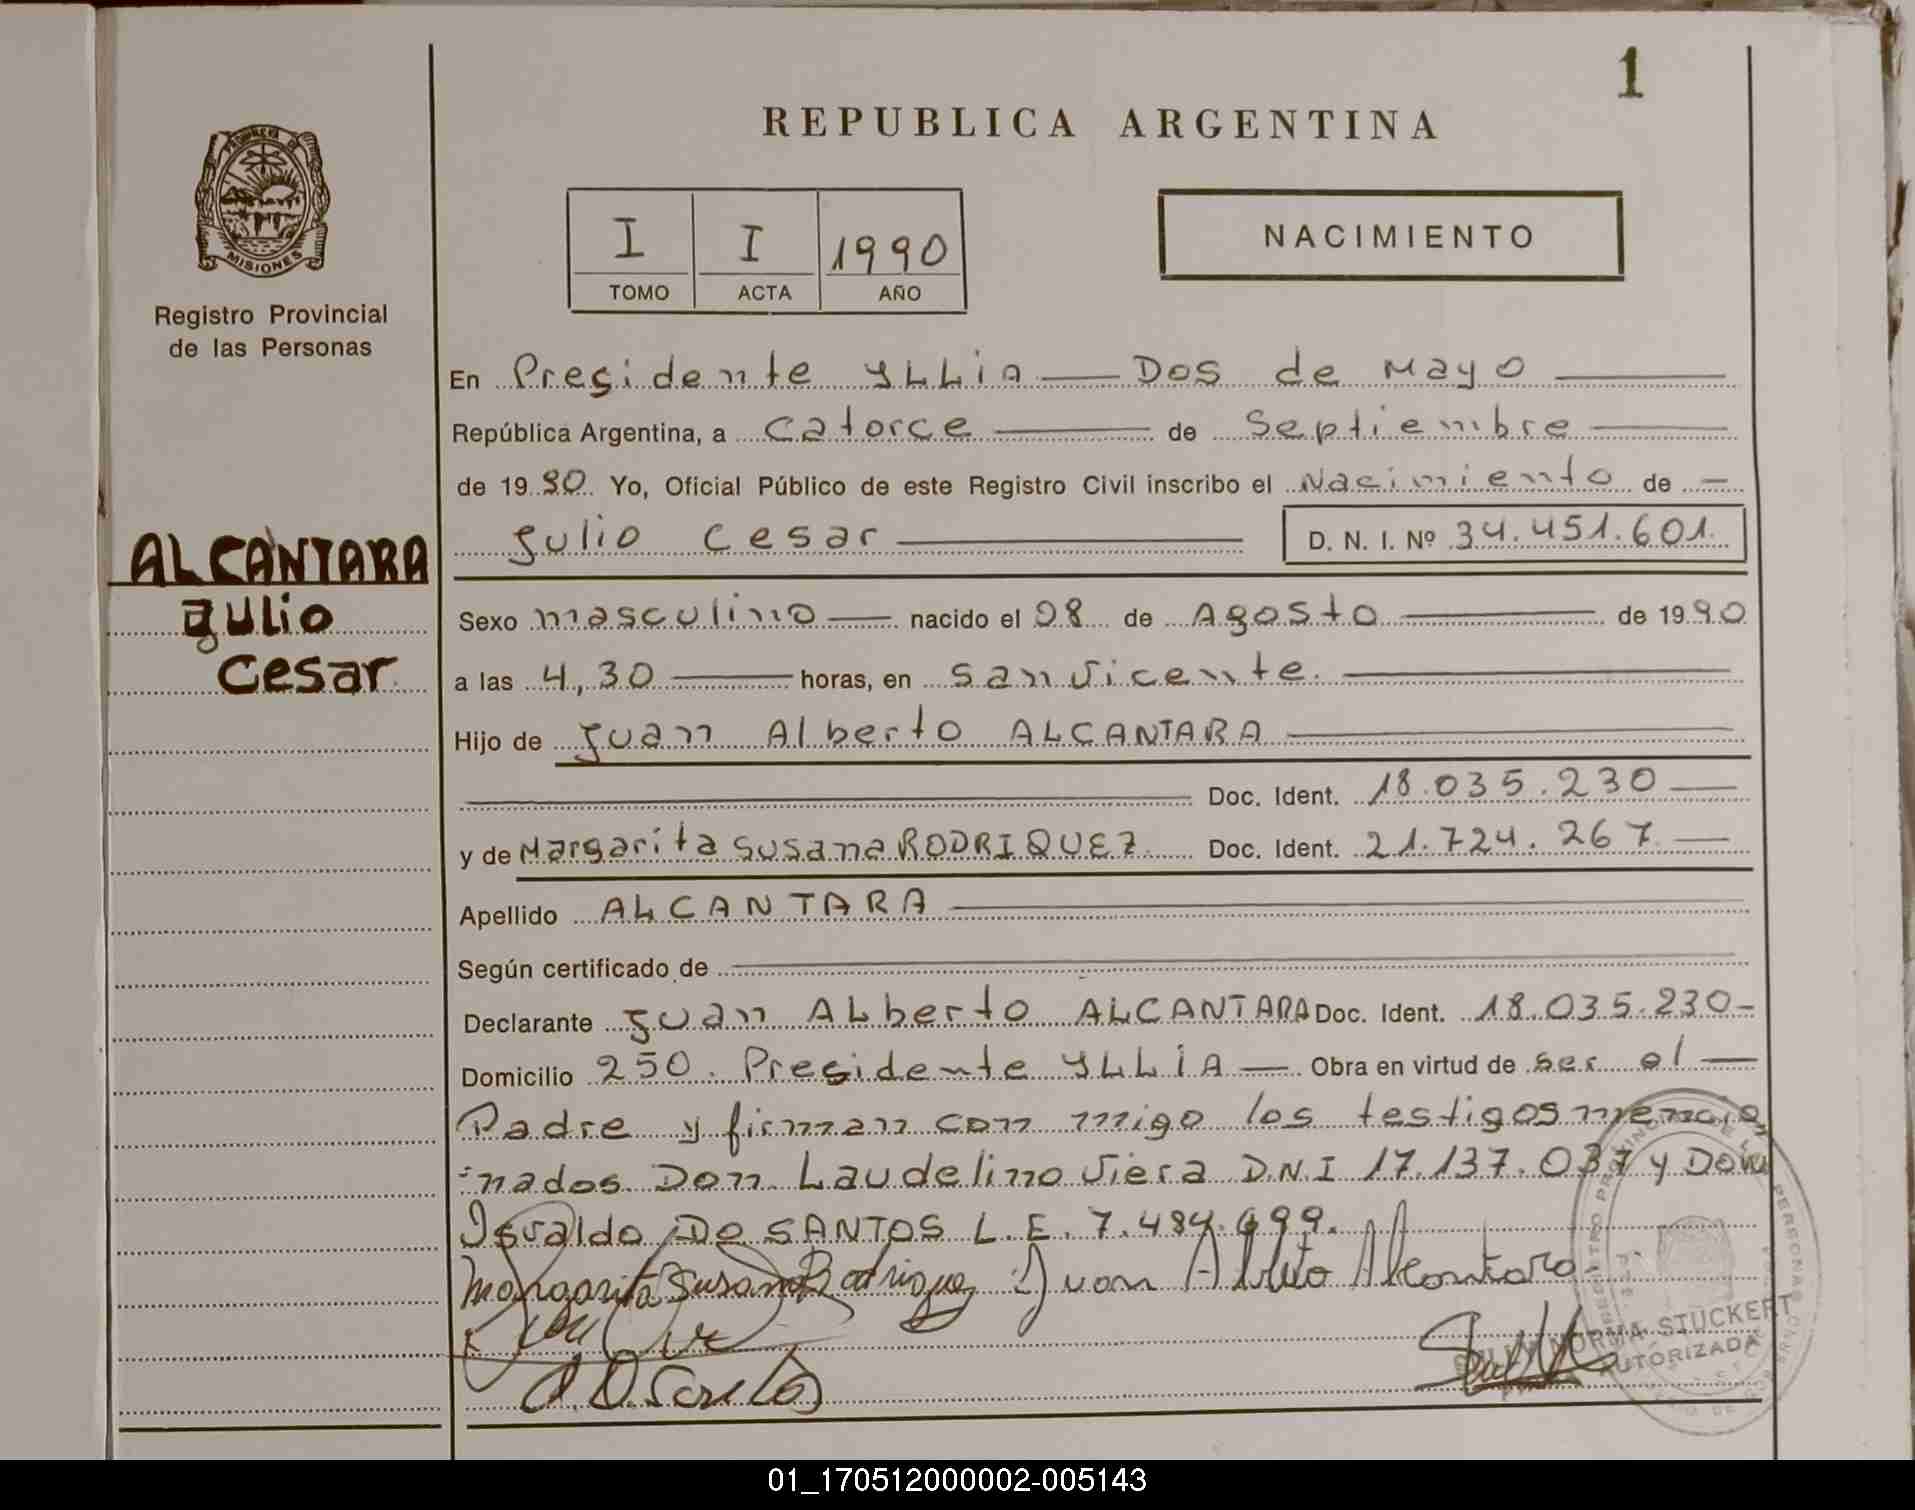 1
REPUBLICA ARGENTINA
MISIONES
Registro Provincial
de las Personas
I I 1990
TOMO ACTA AÑO
NACIMIENTO
En Presidente YLLIA — Dos de Mayo —
República Argentina, a Catorce — de Septiembre —
de 1990 Yo, Oficial Público de este Registro Civil inscribo el Nacimiento de —
Julio Cesar — D. N. I. Nº 34.451.601.
ALCANTARA
Julio
Cesar
Sexo masculino — nacido el 08 de Agosto — de 1990
a las 4,30 — horas, en San Vicente. —
Hijo de Juan Alberto ALCANTARA —
— Doc. Ident. 18.035.230 —
y de Margarita Susana RODRIQUEZ Doc. Ident. 21.724.267 —
Apellido ALCANTARA —
Según certificado de —
Declarante Juan ALberto ALCANTARA Doc. Ident. 18.035.230-
Domicilio 250. Presidente YLLIA — Obra en virtud de ser el —
Padre y firman con migo los testigos mencio
nados Don Laudelino Viera D.N.I 17.137.037 y Don
Osvaldo DO SANTOS L.E. 7.484.699.
Margarita Susana Rodriguez Juan Alberto Alcantara
NORMA STUCKERT
AUTORIZADA
01_170512000002-005143